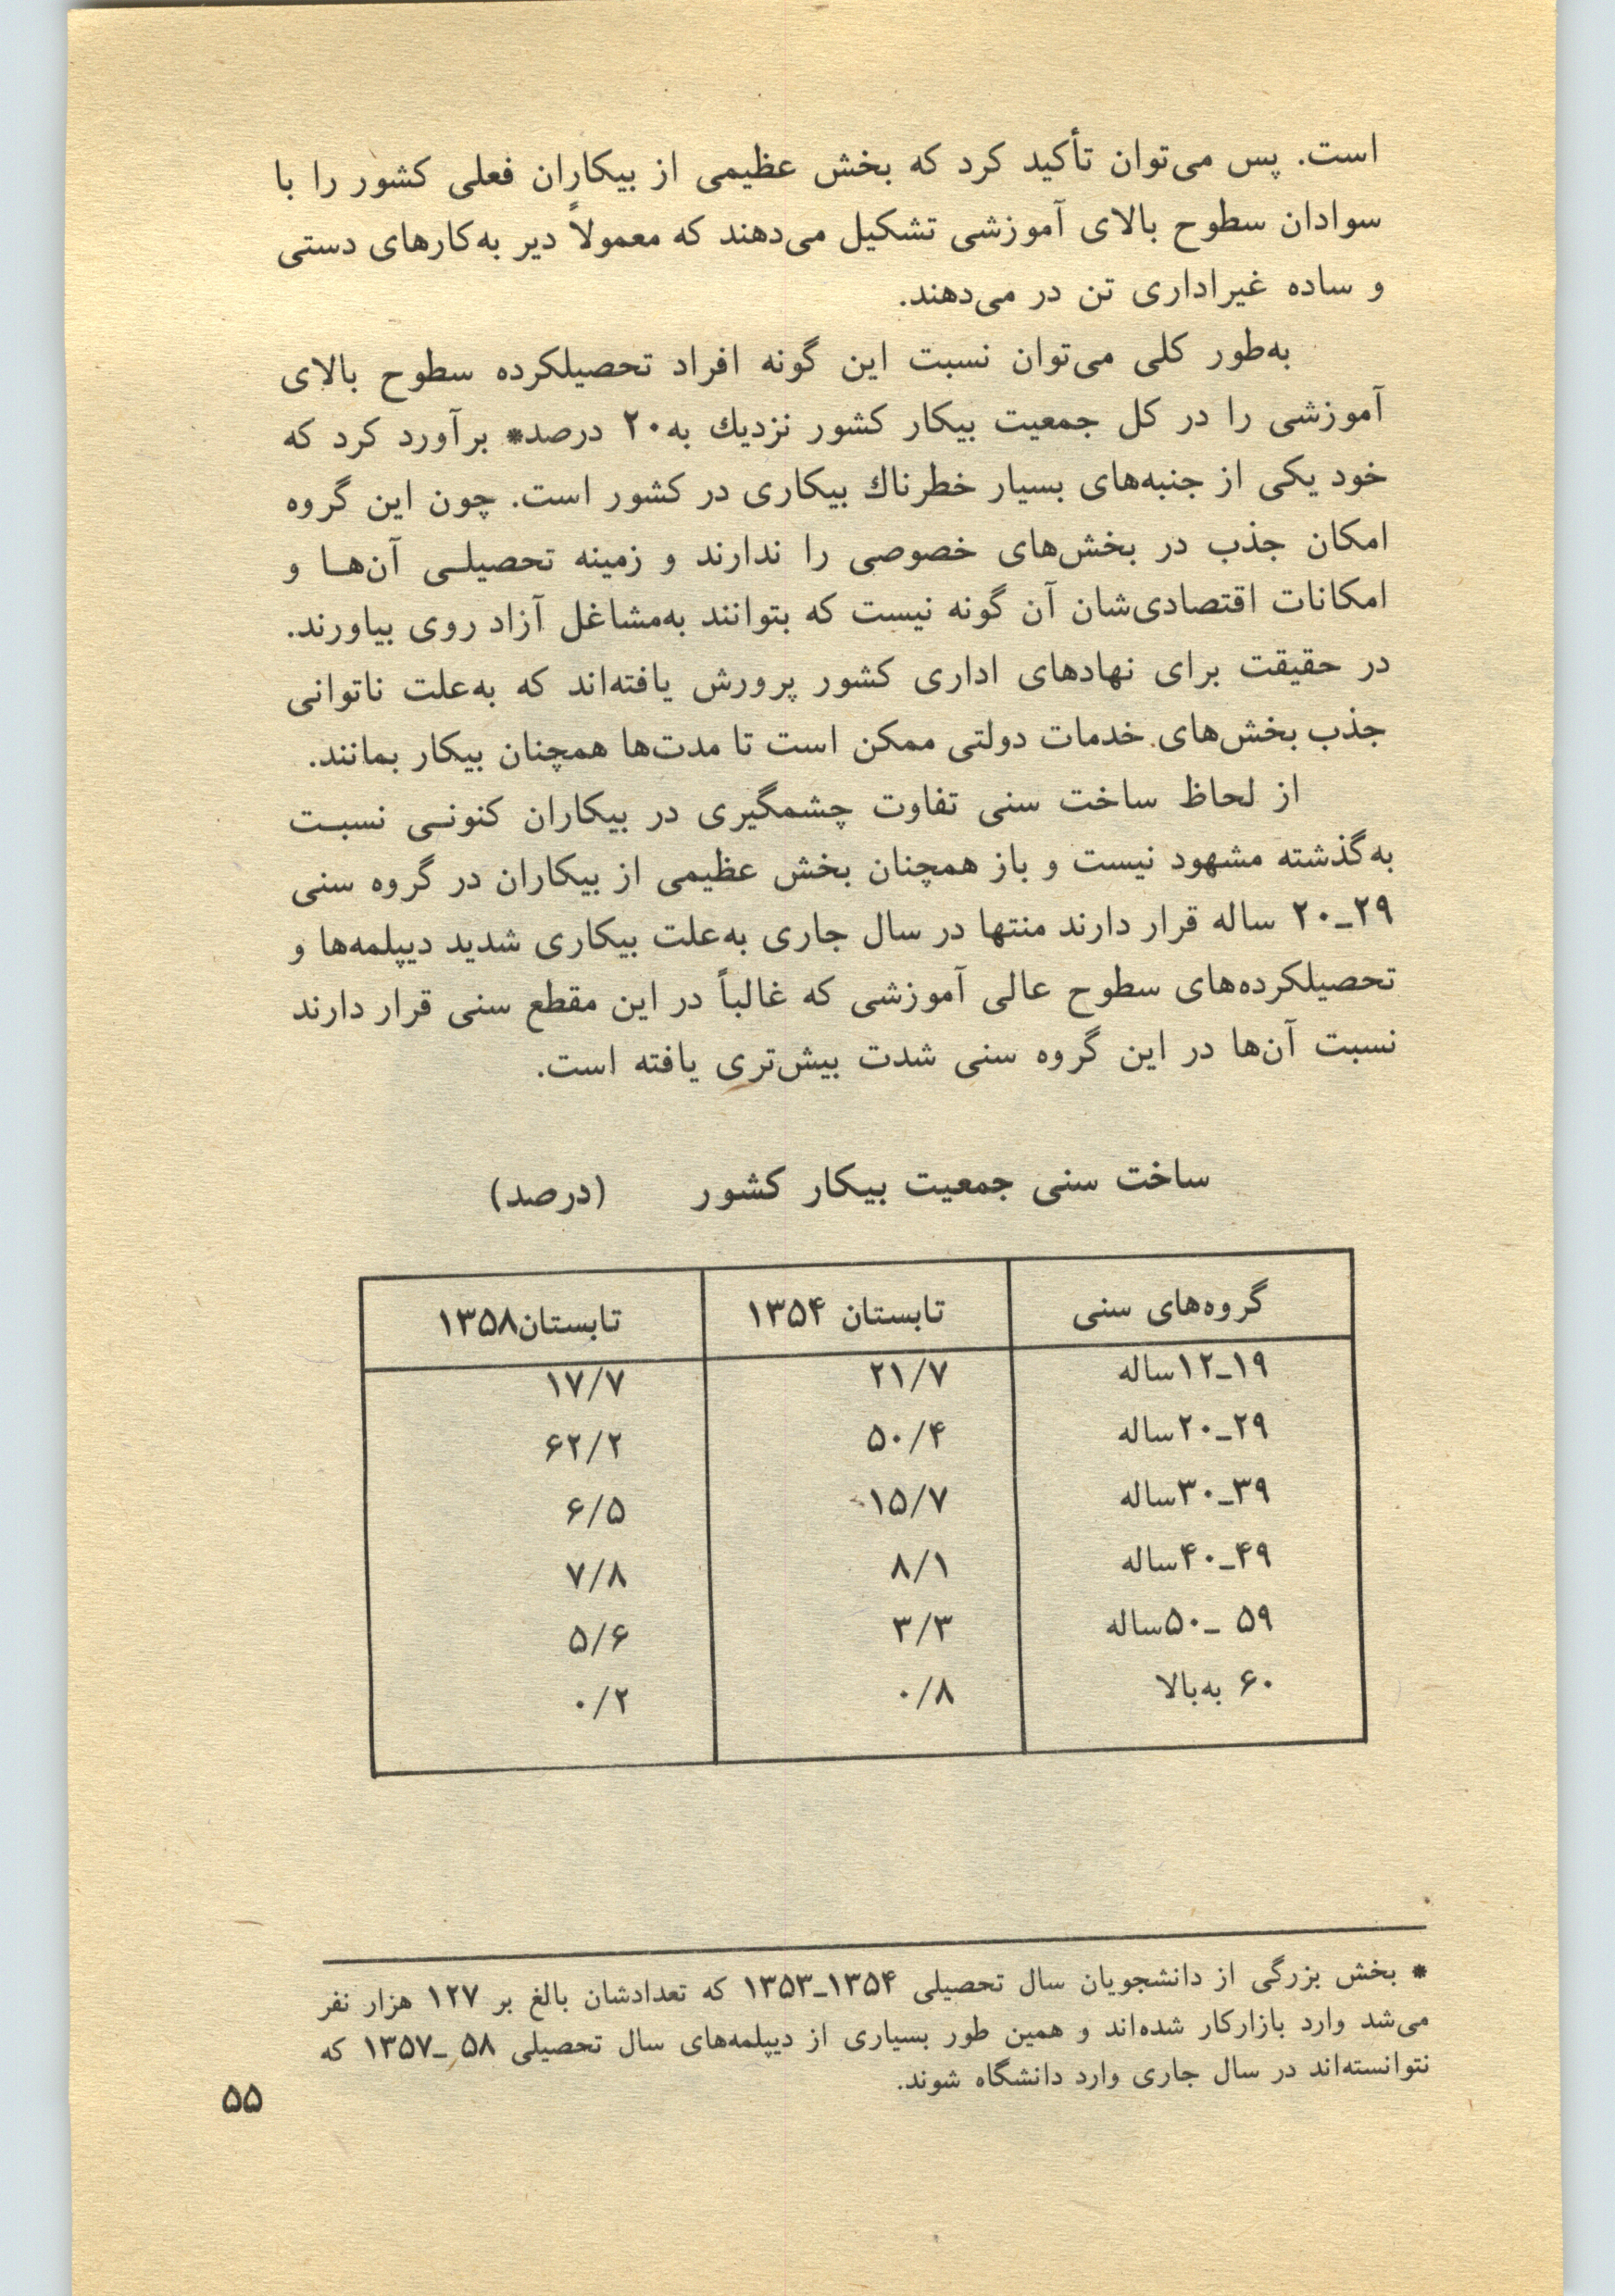 است. پس می‌توان تأکید کرد که بخش عظیمی از بیکاران فعلی کشور را با
سوادان سطوح بالای آموزشی تشکیل می‌دهند که معمولاً دیر به‌کارهای دستی
و ساده غیراداری تن در می‌دهند.
به‌طور کلی می‌توان نسبت این گونه افراد تحصیلکرده سطوح بالای
آموزشی را در کل جمعیت بیکار کشور نزدیك به۲۰ درصد* برآورد کرد که
خود یکی از جنبه‌های بسیار خطرناك بیکاری در کشور است. چون این گروه
امکان جذب در بخش‌های خصوصی را ندارند و زمینه تحصیلی آن‌ها و
امکانات اقتصادی‌شان آن گونه نیست که بتوانند به‌مشاغل آزاد روی بیاورند.
در حقیقت برای نهادهای اداری کشور پرورش یافته‌اند که به‌علت ناتوانی
جذب بخش‌های خدمات دولتی ممکن است تا مدت‌ها همچنان بیکار بمانند.
از لحاظ ساخت سنی تفاوت چشمگیری در بیکاران کنونی نسبت
به‌گذشته مشهود نیست و باز همچنان بخش عظیمی از بیکاران در گروه سنی
۲۹ـ۲۰ ساله قرار دارند منتها در سال جاری به‌علت بیکاری شدید دیپلمه‌ها و
تحصیلکرده‌های سطوح عالی آموزشی که غالباً در این مقطع سنی قرار دارند
نسبت آن‌ها در این گروه سنی شدت بیش‌تری یافته است.
ساخت سنی جمعیت بیکار کشور (درصد)
گروه‌های سنی تابستان ۱۳۵۴ تابستان۱۳۵۸
۱۹ـ۱۲ساله ۲۱/۷ ۱۷/۷
۲۹ـ۲۰ساله ۵۰/۴ ۶۲/۲
۳۹ـ۳۰ساله ۱۵/۷ ۶/۵
۴۹ـ۴۰ساله ۸/۱ ۷/۸
۵۹ ـ۵۰ساله ۳/۳ ۵/۶
۶۰ به‌بالا ۰/۸ ۰/۲
* بخش بزرگی از دانشجویان سال تحصیلی ۱۳۵۴ـ۱۳۵۳ که تعدادشان بالغ بر ۱۲۷ هزار نفر
می‌شد وارد بازارکار شده‌اند و همین طور بسیاری از دیپلمه‌های سال تحصیلی ۵۸ ـ۱۳۵۷ که
نتوانسته‌اند در سال جاری وارد دانشگاه شوند.
۵۵